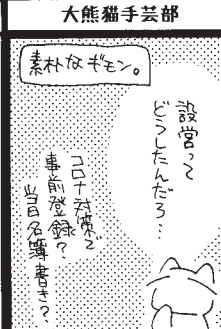 大熊猫手芸部
素朴なギモン。
設営って
どうしたんだろ…
コロナ対策で
事前登録?
当日名簿書き?